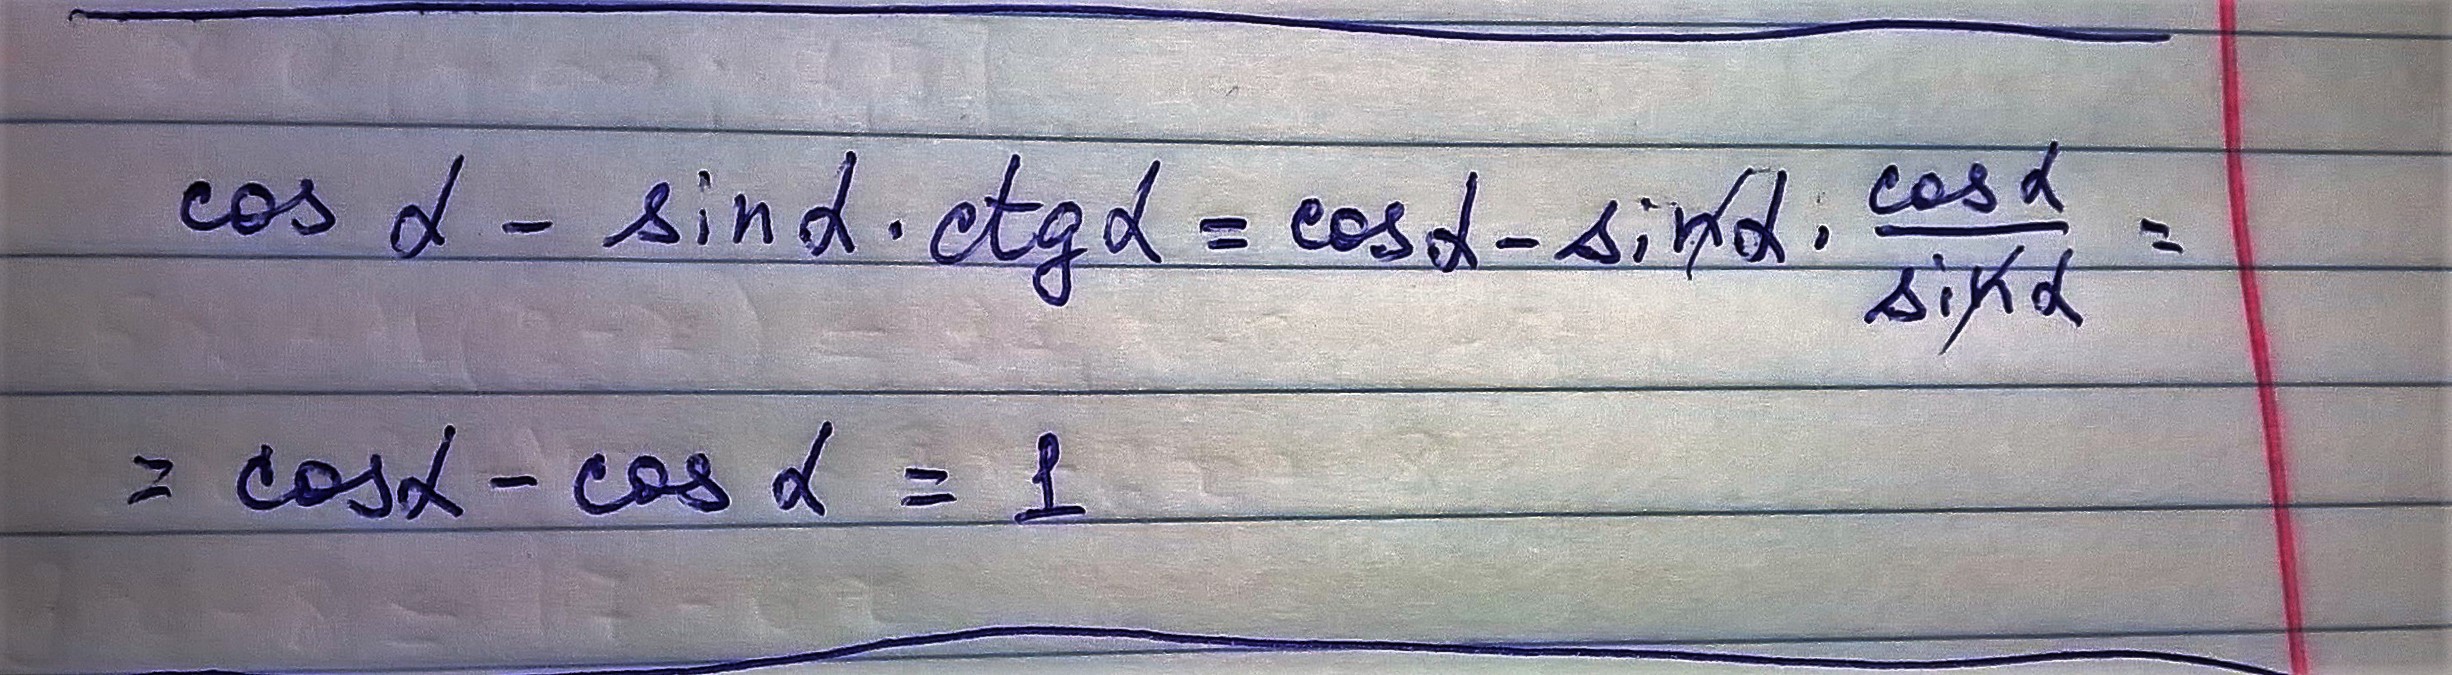 cos α - sin α · ctg α = cos α - sin α · cos α / sin α =
= cos α - cos α = 1